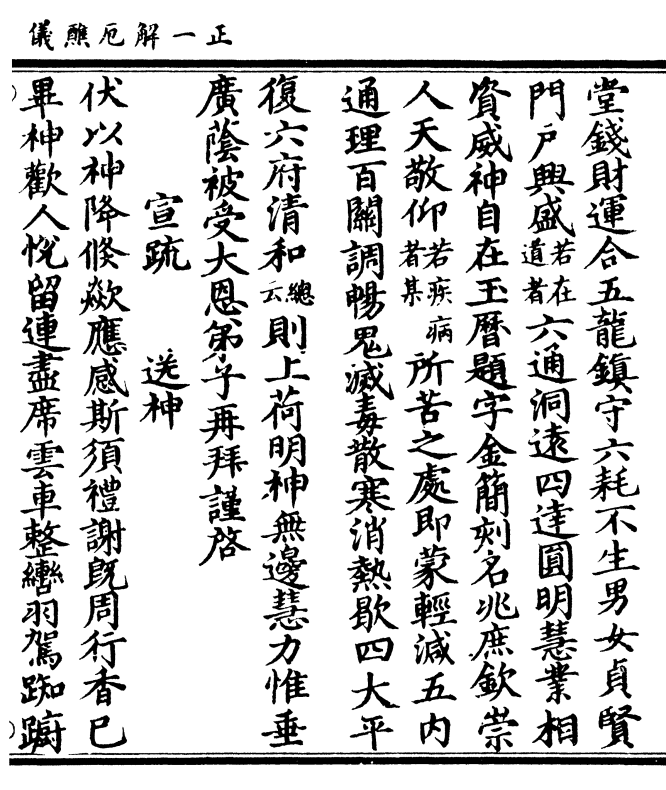 正一解厄醮儀
堂錢財運合五龍鎮守六耗不生男女貞賢
門戶興盛若在道者六通洞遠四達圓明慧業相
資威神自在玉曆題字金簡刻名兆庶欽崇
人天敬仰若疾病者某所苦之處即蒙輕減五內
通理百關調暢鬼滅毒散寒消熱歇四大平
復六府清和總云則上荷明神無邊慧力惟垂
廣蔭被受大恩弟子再拜謹啓
宣疏 送神
伏以神降倐歘應感斯須禮謝旣周行香已
畢神歡人悅留連盡席雲車整轡羽駕踟躕